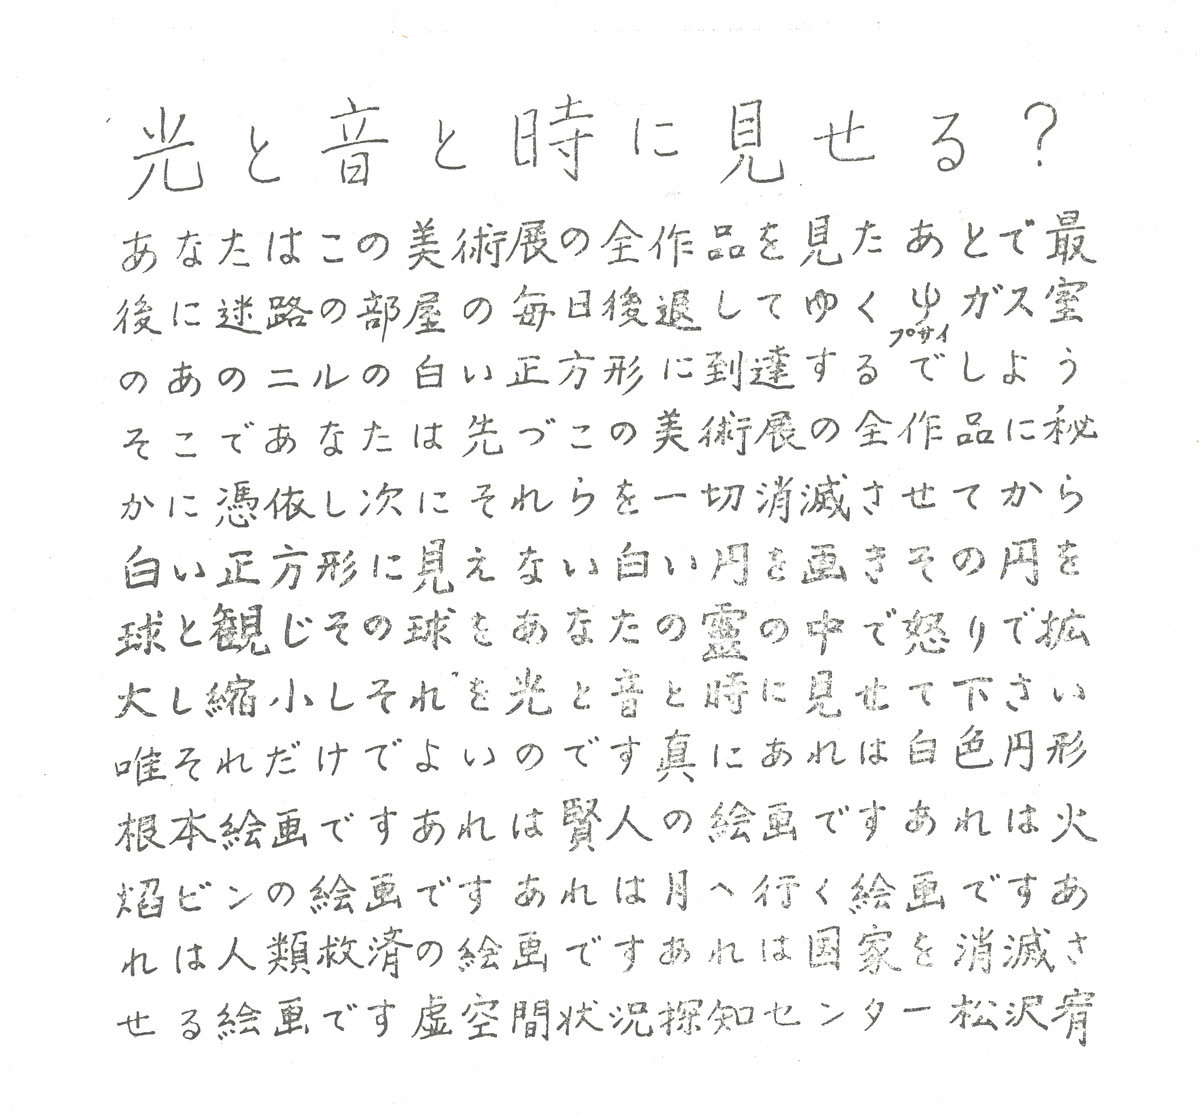 光と音と時に見せる?
あなたはこの美術展の全作品を見たあとで最
後に迷路の部屋の毎日後退してゆくψガス室
プサイ
のあのニルの白い正方形に到達するでしよう
そこであなたは先づこの美術展の全作品に秘
かに憑依し次にそれらを一切消滅させてから
白い正方形に見えない白い円を画きその円を
球と観じその球をあなたの靈の中で怒りで拡
大し縮小しそれ゛を光と音と時に見せて下さい
唯それだけでよいのです真にあれは白色円形
根本絵画ですあれは賢人の絵画ですあれは火
焰ビンの絵画ですあれは月へ行く絵画ですあ
れは人類救済の絵画ですあれは国家を消滅さ
せる絵画です虚空間状況探知センター松沢宥